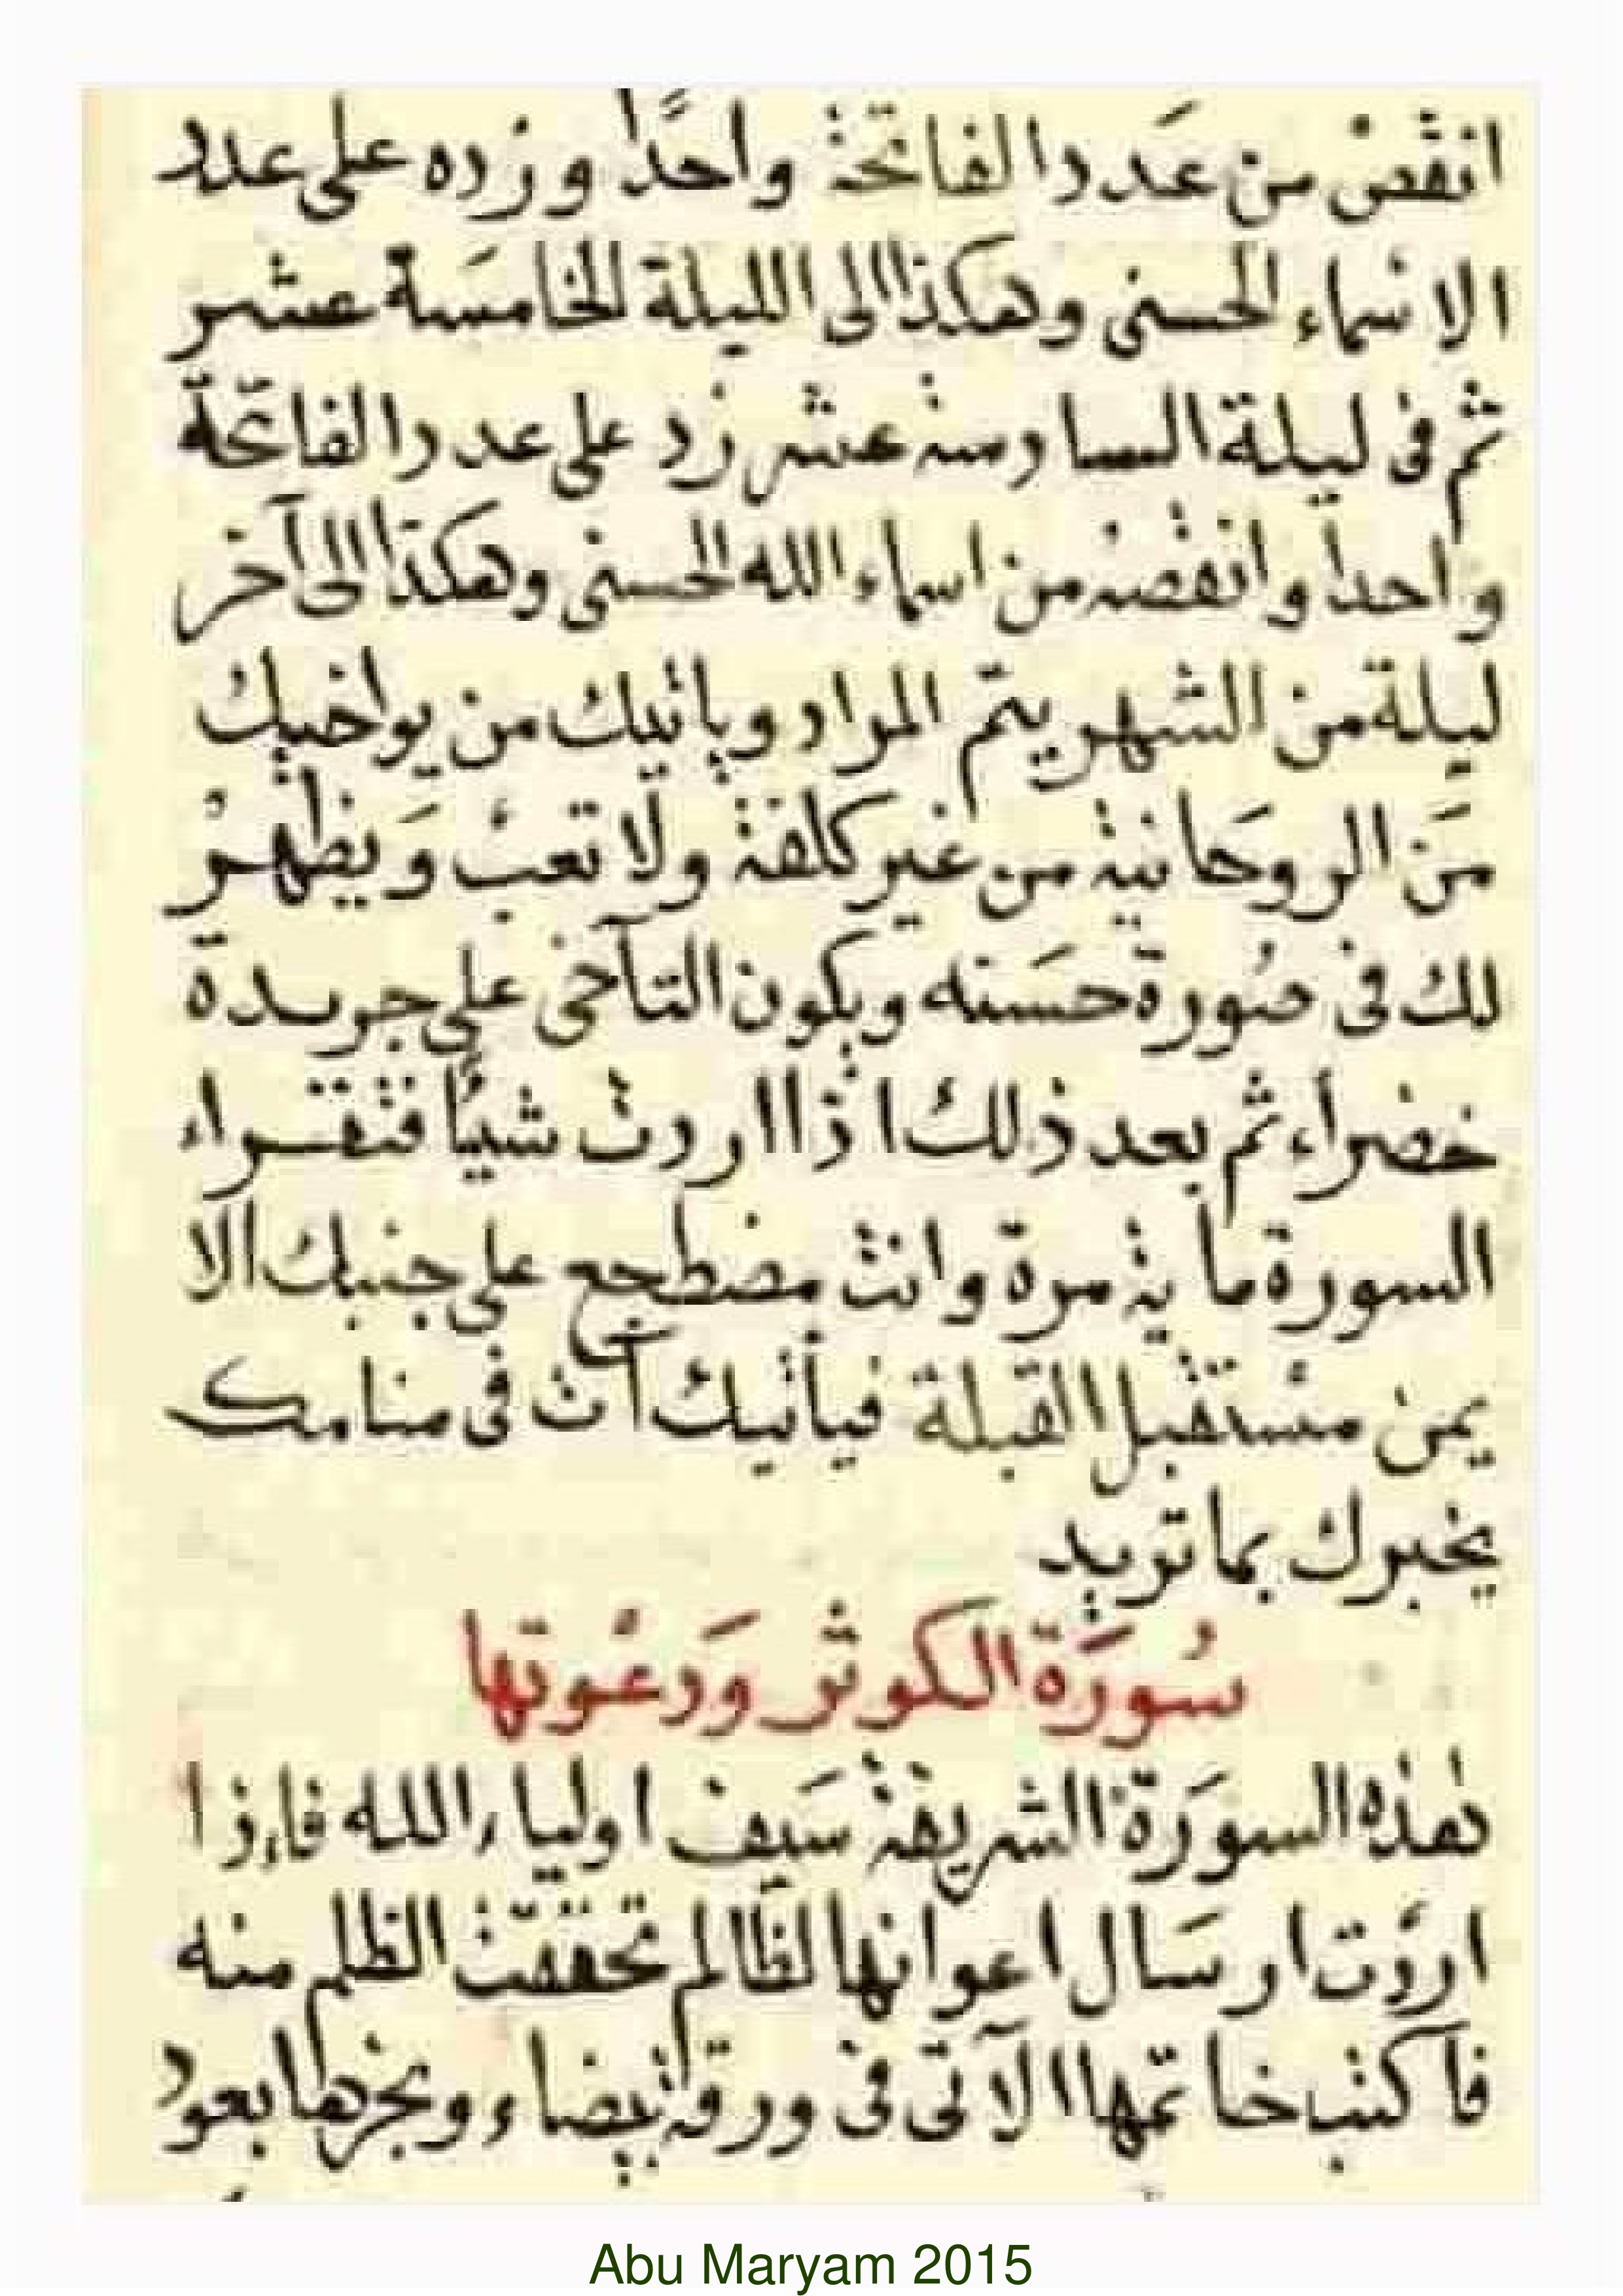 انقصْ من عَدد الفاتحة واحدًا وزده على عدد
الاسْماء الحسنى وهكذا الى الليلة الخامسَة عشر
ثم فى ليلة السادسة عشر زد على عدد الفاتحّة
واحدا وانقصه من اسماء الله الحسنى وهكذا الى آخر
ليلة من الشهر يتمّ المراد ويأتيك من يواخيك
مَن الروحَانية من غير كلفة ولا تعبْ وَيظهرْ
لك فى صُورة حسَنه ويكون التآخى على جريدة
خضراء ثم بعد ذلك اذا اردت شيئًا فتقراء
السورة ماية مرة وانت مضطجع على جنبك الا
يمن مسْتقبل القبلة فيأتيك آت فى منامك
يخبرك بما تريد
سُورَة الكوثر وَدعْوتها
هذه السورَة الشريفة سَيف اولياء الله فاءذا
اردْت ارسَال اعوانها لظالم تحققّت الظلم منه
فآكتب خاتمها الآتى فى ورقة بيضاء وبخرها بعود
Abu Maryam 2015